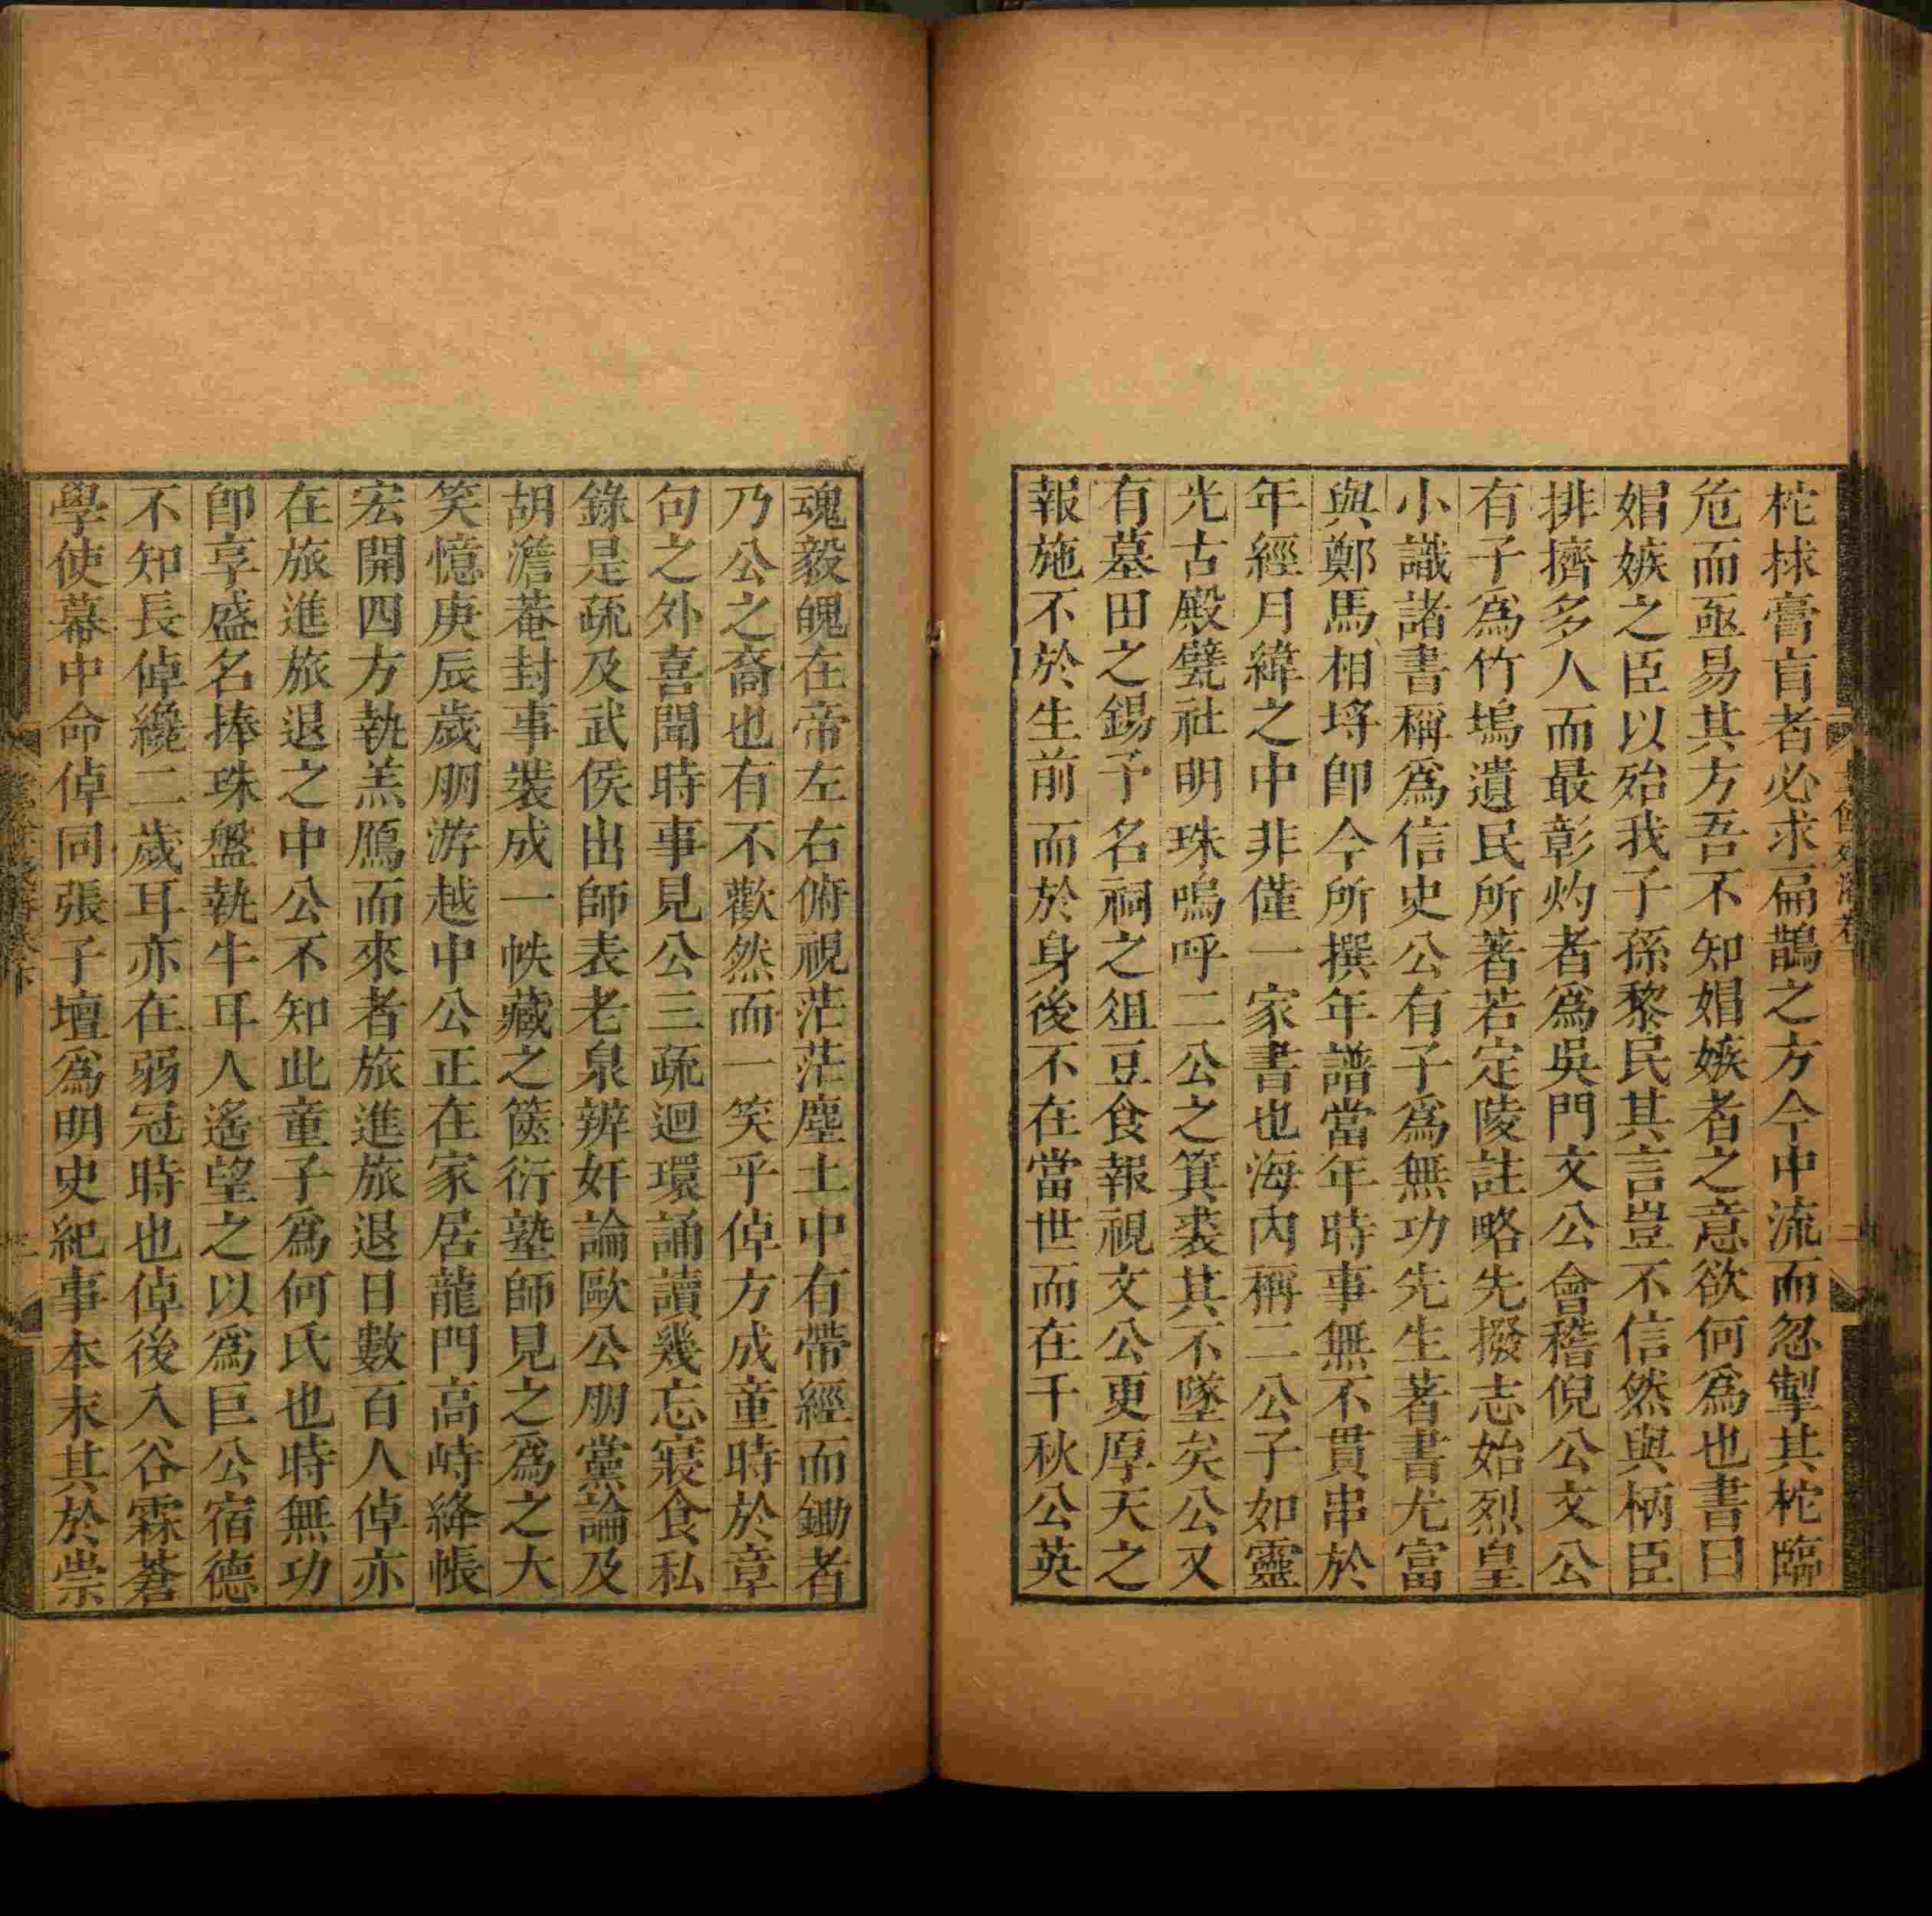 柁捄膏肓者必求扁鵲之方今中流而忽掣其柁臨
危而亟易其方吾不知媢嫉者之意欲何爲也書曰
媢嫉之臣以殆我子孫黎民其言豈不信然與柄臣
排擠多人而最彰灼者爲吳門文公會稽倪公文公
有子爲竹塢遺民所著若定陵註略先撥志始烈皇
小識諸書稱爲信史公有子爲無功先生著書尤富
與鄭馬相埒卽今所撰年譜當年時事無不貫串於
年經月緯之中非僅一家書也海內稱二公子如靈
光古殿甓社明珠嗚呼二公之箕裘其不墜矣公又
有墓田之錫予名祠之俎豆食報視文公更厚天之
報施不於生前而於身後不在當世而在千秋公英
魂毅魄在帝左右俯視茫茫塵土中有帶經而鋤者
乃公之裔也有不歡然而一笑乎倬方成童時於章
句之外喜聞時事見公三疏迴環誦讀幾忘寢食私
錄是疏及武侯出師表老泉辨奸論歐公朋黨論及
胡澹菴封事裝成一帙藏之篋衍塾師見之爲之大
笑憶庚辰歲朋游越中公正在家居龍門高峙絳帳
宏開四方執羔鴈而來者旅進旅退日數百人倬亦
在旅進旅退之中公不知此童子爲何氏也時無功
卽享盛名捧珠盤執牛耳人遙望之以爲巨公宿德
不知長倬纔二歲耳亦在弱冠時也倬後入谷霖蒼
學使幕中命倬同張子壇爲明史紀事本末其於崇